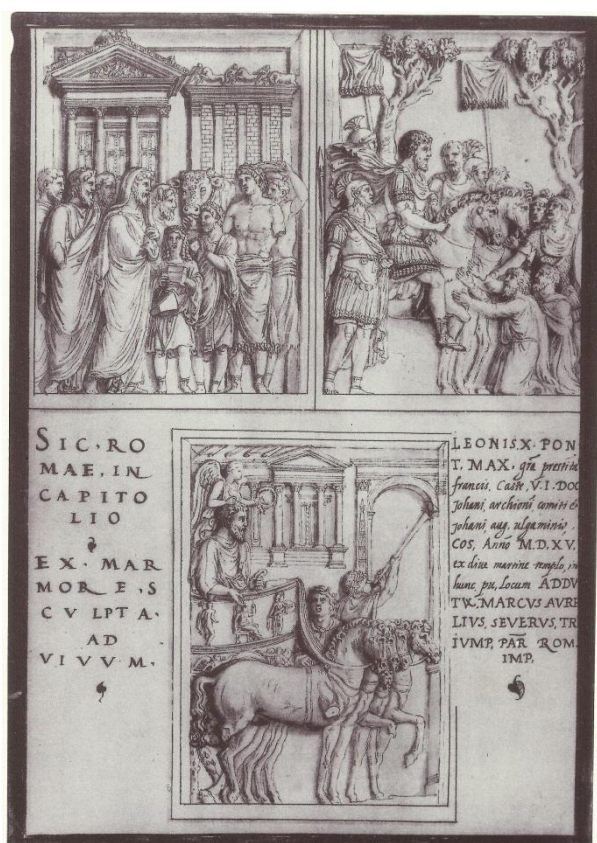 SIC·RO
MAE, IN
CAPITO
LIO
EX·MAR
MORE,S
CVLPTA·
AD
VIVVM·
LEONISX·PON
T, MAX, grã prestita
francis, Caste, V.I.DOC
Johani, archioni, comiti &
Johani, aug, ulgaminis
COS, Anno M.D.XV,
ex dive martine templo, in
hunc pu, locum ADDV
TUX, MARCVS AVRE
LIVS, SEVERVS, TR
IVMP, PAR ROM.
IMP,